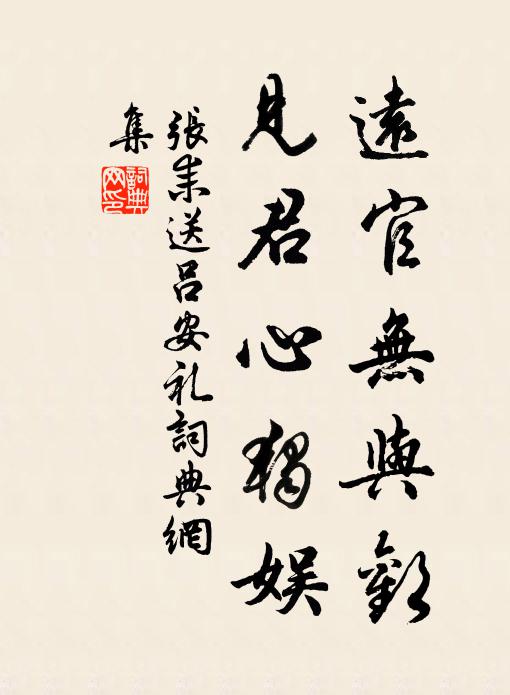 遠官無與歡
見君心獨娛
張耒送呂安礼詞典網
集
詞典
网印